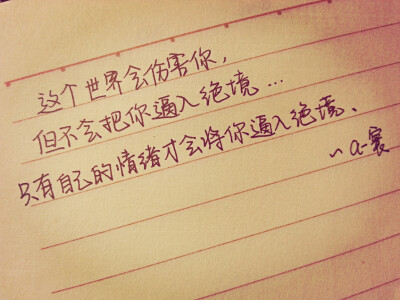 这个世界会伤害你，
但不会把你逼入绝境…
只有自己的情绪才会将你逼入绝境、
~a-寰